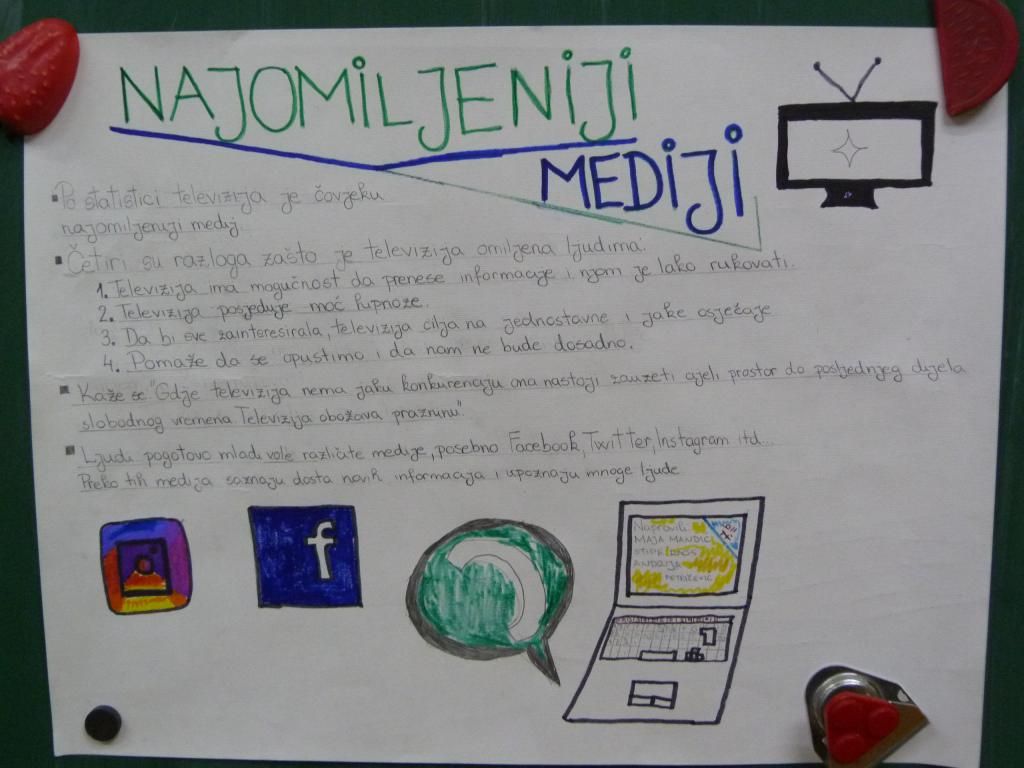 NAJOMILJENIJI
MEDIJI
Po statistici televizija je čovjeku
najomiljeniji medij.
Četiri su razloga zašto je televizija omiljena ljudima:
1. Televizija ima mogučnost da prenese informacije i njom je lako rukovati.
2. Televizija posjeduje moć hipnoze.
3. Da bi sve zainteresirala, televizija cilja na jednostavne i jake osjećaje
4. Pomaže da se opustimo i da nam ne bude dosadno.
Kaže se "Gdje televizija nema jaku konkurenciju ona nastoji zauzeti cijeli prostor do posljednjeg dijela
slobodnog vremena Televizija obožava prazninu".
Ljudi pogotovo mladi vole različite medije, posebno Facebook, Twitter, Instagram itd...
Preko tih medija saznaju dosta novih informacija i upoznaju mnoge ljude
f
Napravili:
MAJA MANDIĆ
STIPE
ANDRIJA
PETRIČEVIĆ